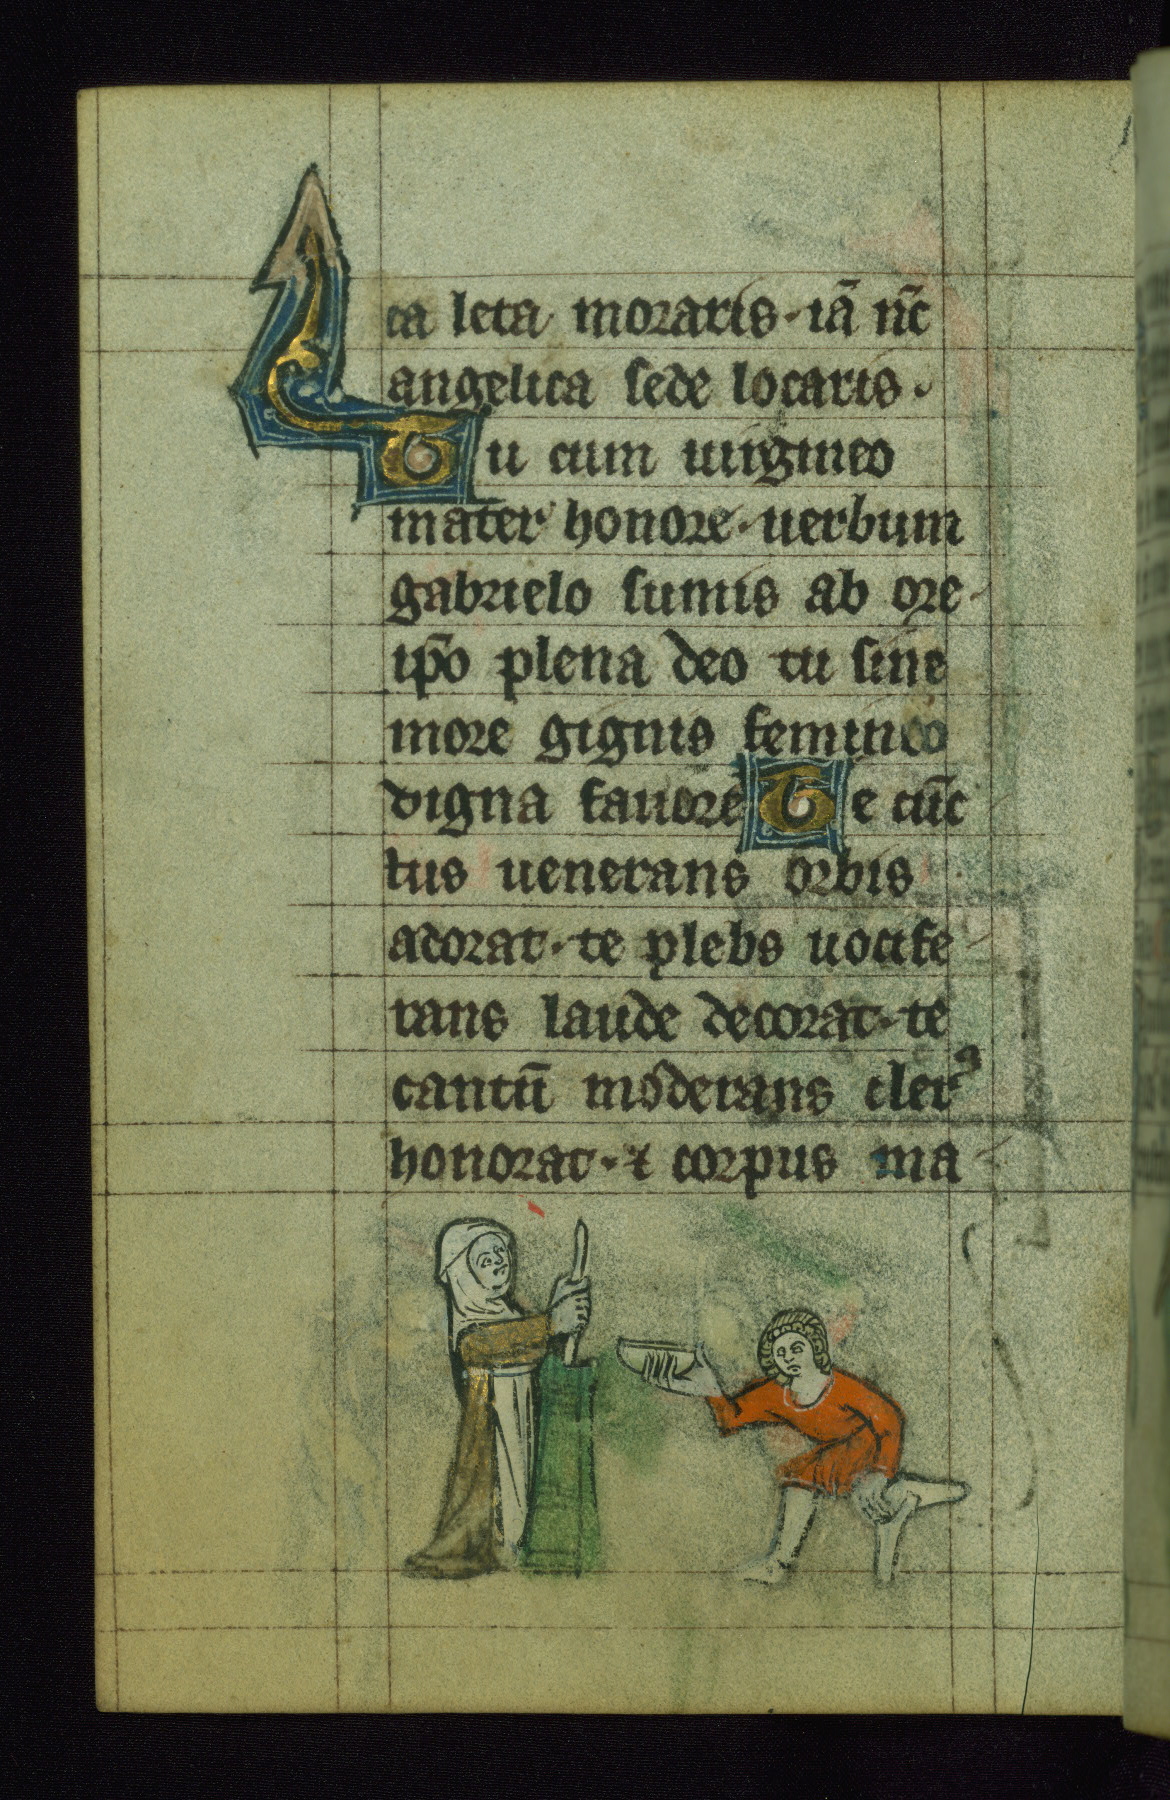 ca leta moraris · iā nc̄
angelica sede locaris ·
Tu cum uirgineo
mater honore · uerbum
gabrielo sumis ab ore
ip̄o plena deo tu sine
more gignis femineo
digna fauore Te cūc
tus uenerans orbis
adorat · te plebs uocife
rans laude decorat · te
cantū moderans clerꝰ
honorat · ⁊ corpus ma